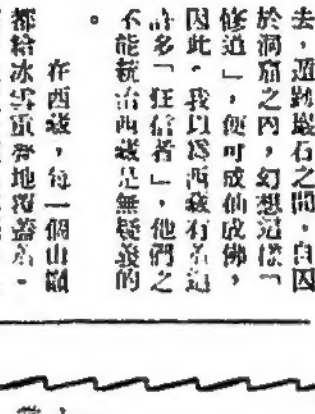 去，遁跡巖石之間，自囚
於洞窟之內，幻想這樣「
修道」，便可成仙成佛，
因此，我以爲西藏有有這
許多「狂信者」，他們之
不能統治西藏是無疑義的
。
在西藏，每一個山嶺
都給冰雪重疊地覆蓋着，